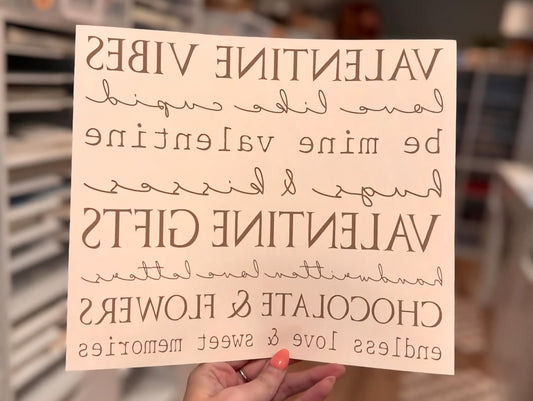 VALENTINE VIBES
love like cupid
be mine valentine
hugs & kisses
VALENTINE GIFTS
handwritten love letters
CHOCOLATE & FLOWERS
endless love & sweet memories